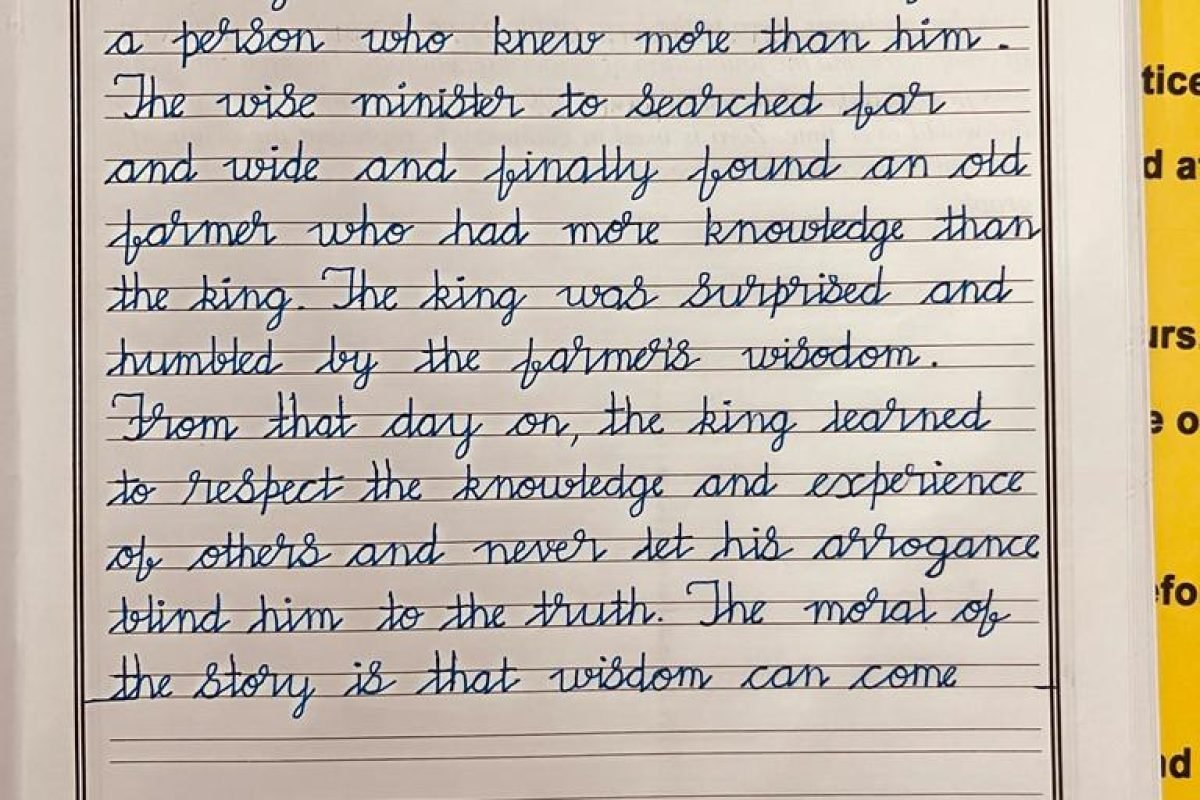 a person who knew more than him.
The wise minister to searched far
and wide and finally found an old
farmer who had more knowledge than
the king. The king was surprised and
humbled by the farmer's wisodom.
From that day on, the king learned
to respect the knowledge and experience
of others and never let his arrogance
blind him to the truth. The moral of
the story is that wisdom can come